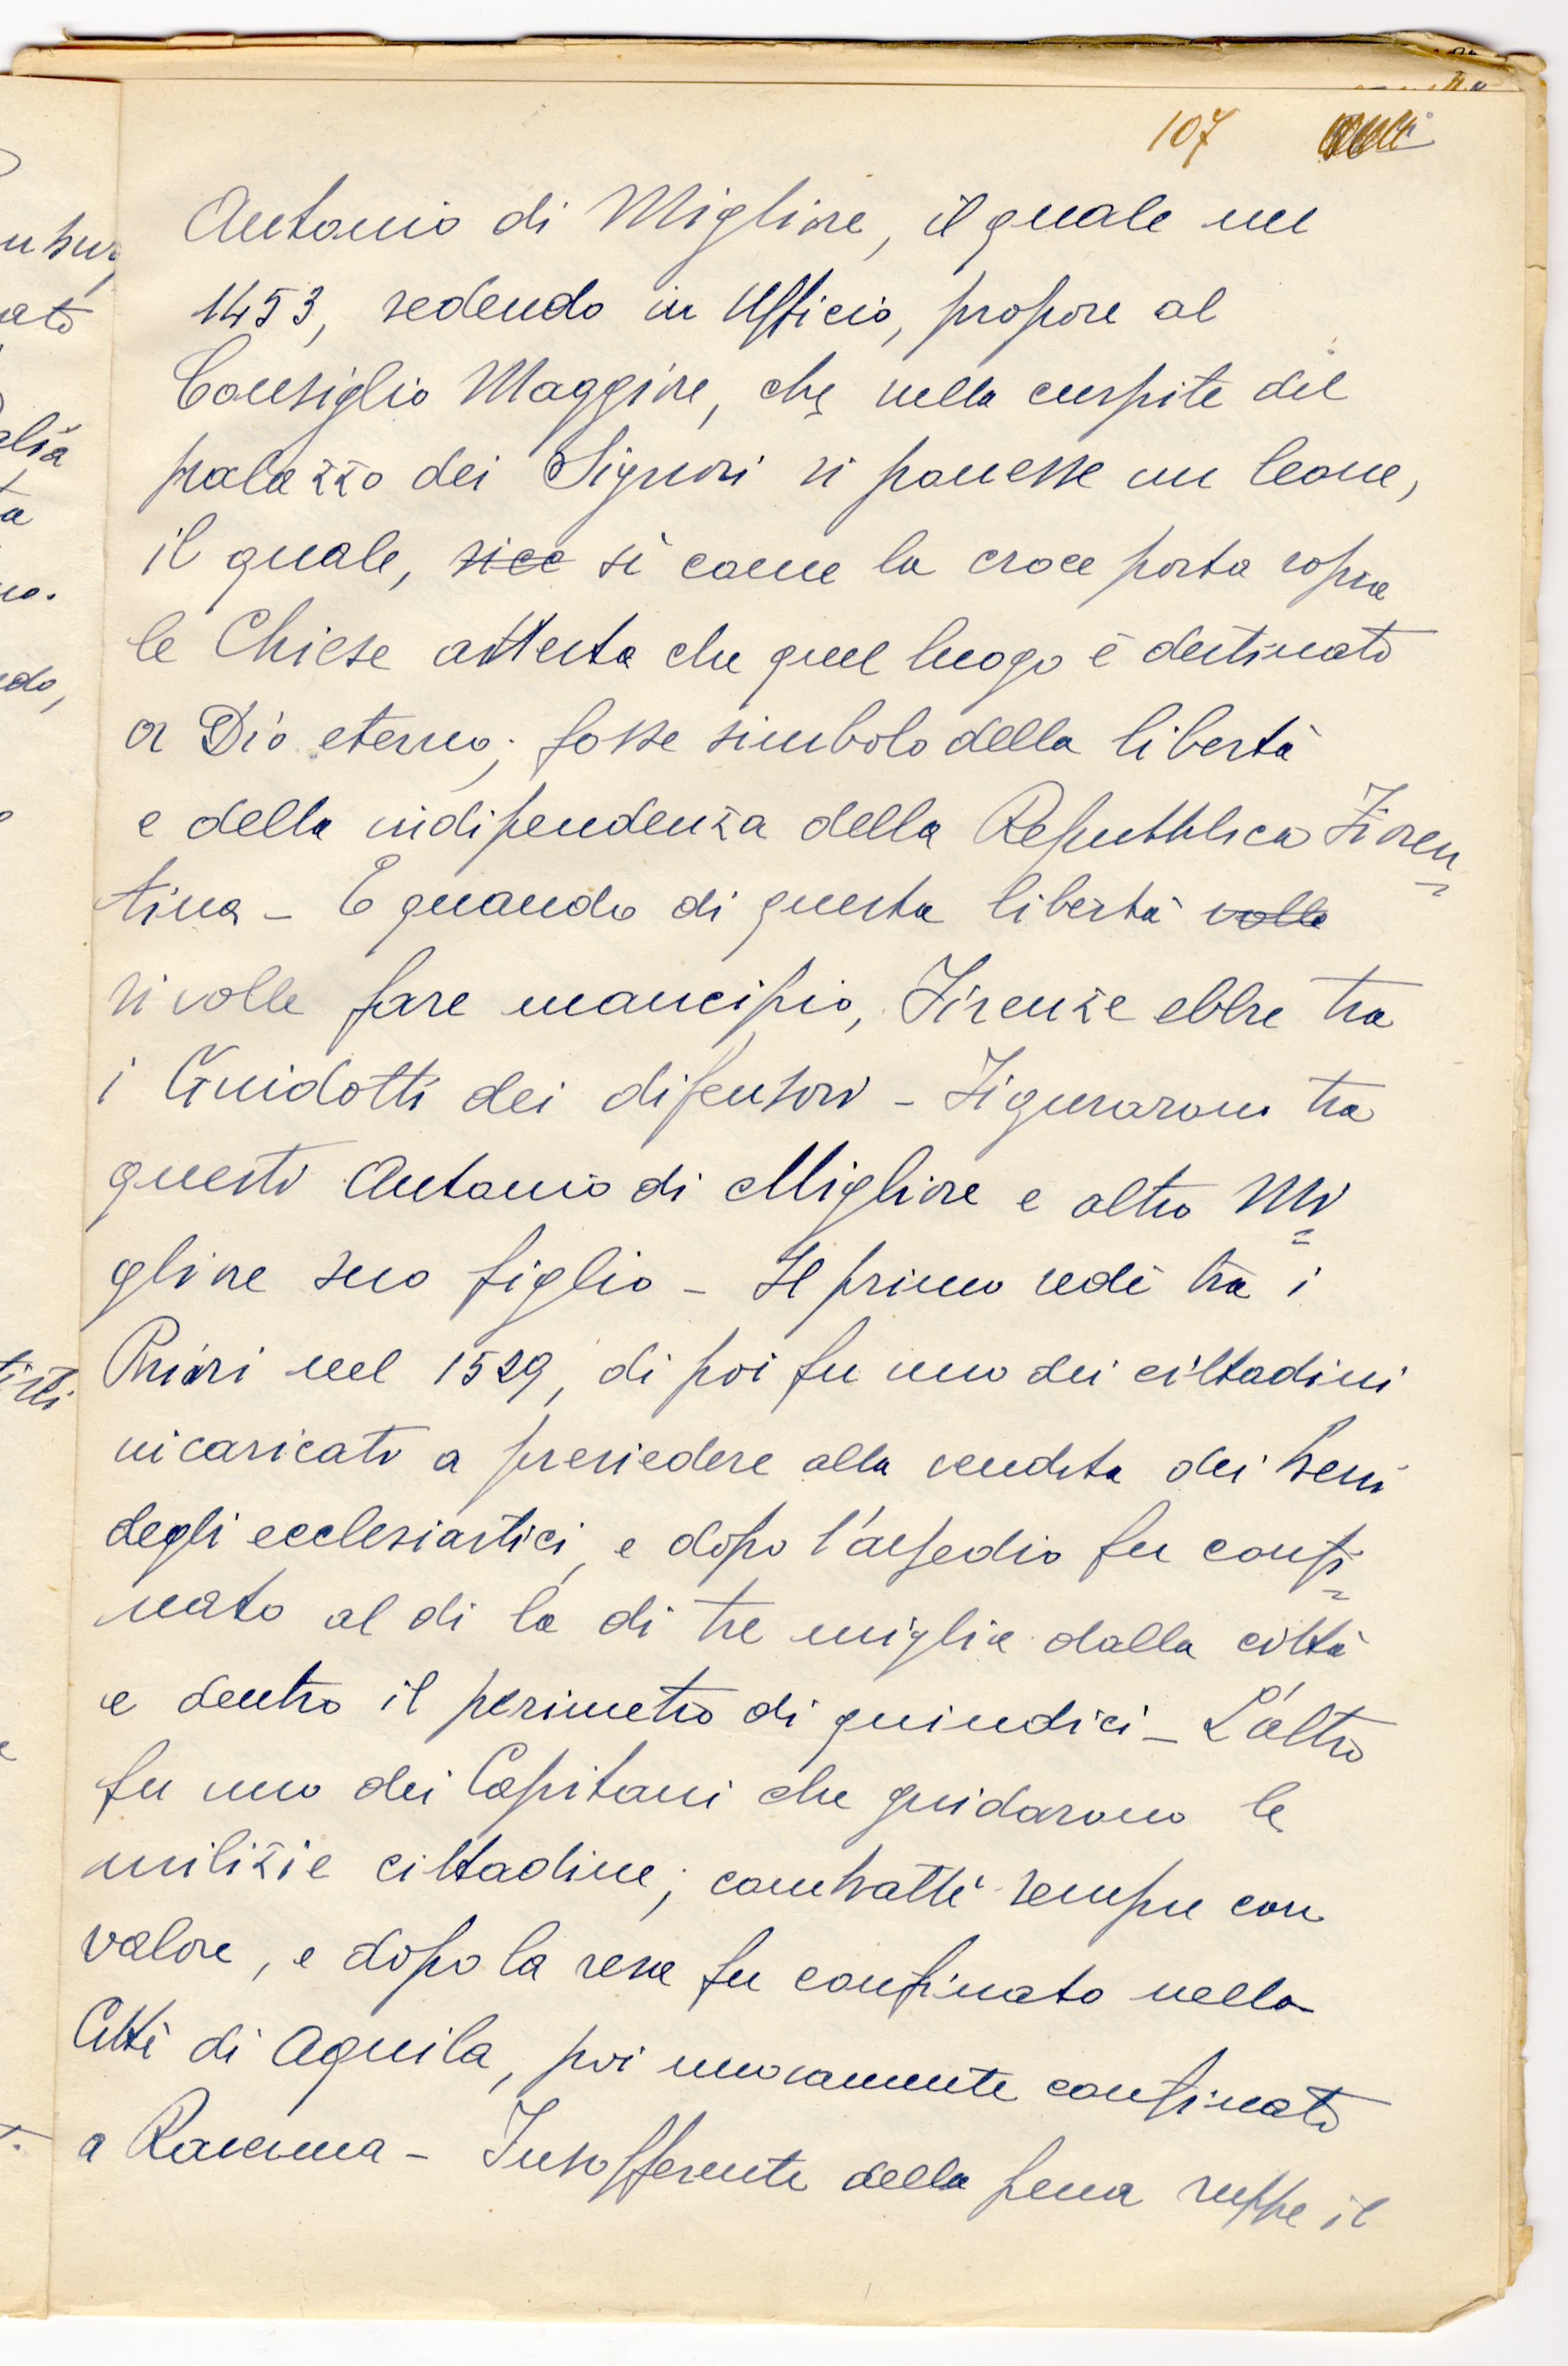 107
Antonio di Migliore, il quale nel
1453, sedendo in Ufficio, propose al
Consiglio Maggiore, che nella cuspite del
palazzo dei Signori si ponesse un leone,
il quale, sicc sì come la croce posta sopra
le Chiese attesta che quel luogo è destinato
a Dio eterno; fosse simbolo della libertà
e della indipendenza della Repubblica Fioren=
tina - E quando di questa libertà volle
si volle fare mancipio, Firenze ebbe tra
i Guidotti dei difensori - Figurarono tra
questi Antonio di Migliore e altro Mi=
gliore suo figlio - Il primo sedè tra i
Priori nel 1529, di poi fu uno dei cittadini
incaricati a presiedere alla vendita dei beni
degli ecclesiastici, e dopo l'assedio fu confi=
nato al di là di tre miglia dalla città
e dentro il perimetro di quindici - L'altro
fu uno dei Capitani che guidarono le
milizie cittadine; combattè sempre con
valore, e dopo la resa fu confinato nella
Città di Aquila, poi nuovamente confinato
a Ravenna - Insofferente della pena ruppe il